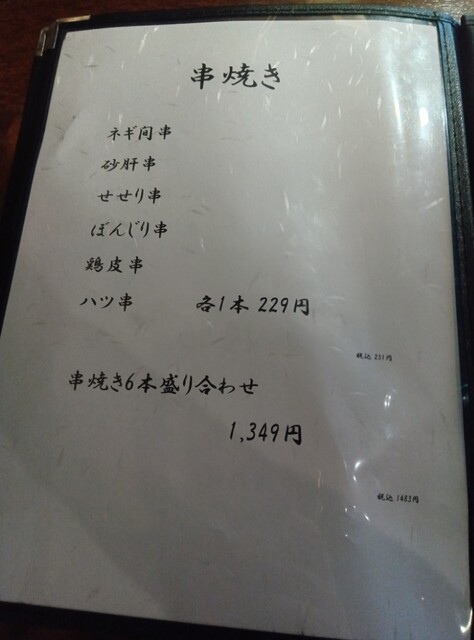 串焼き
ネギ間串
砂肝串
せせり串
ぼんじり串
鶏皮串
ハツ串 各1本 229円
税込 231円
串焼き6本盛り合わせ
1,349円
税込 1483円